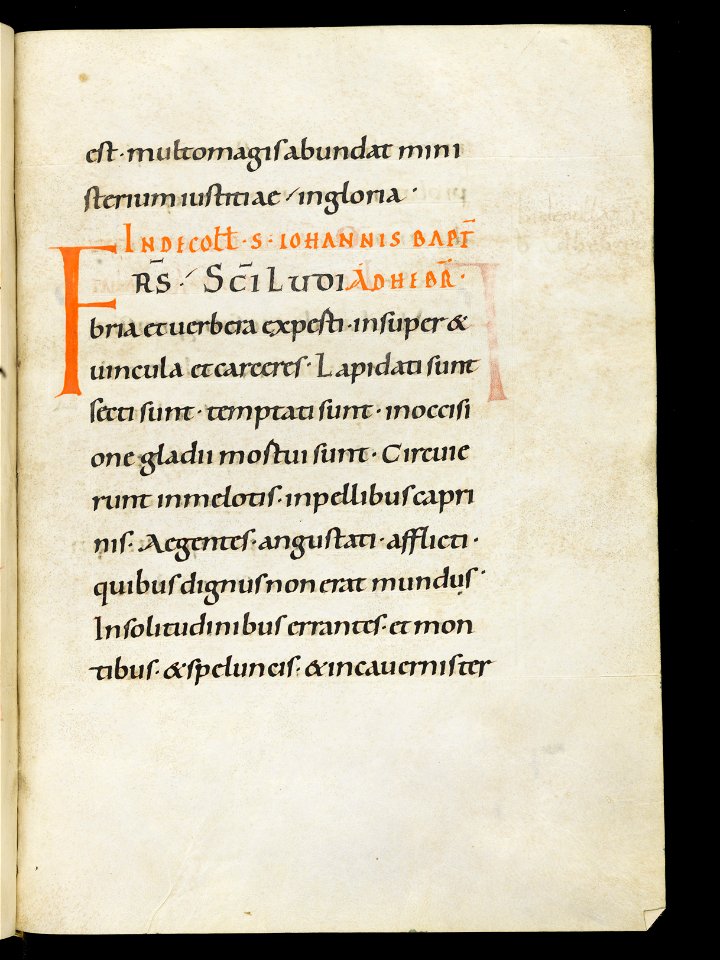 est· multomagisabundat mini
sterium iustitiae / ingloria·
INDECOLL·S·IOHANNIS BAPT̄
FRS̄· SC̄I LUDI ADHEBR̄·
bria etuerbera experti·insuper &
uincula etcarceres· Lapidati sunt
secti sunt· temptati sunt· inoccisi
one gladii mostui sunt· Circuie
runt inmelotis·inpellibuscapri
nis· Aegentes·angustati·afflicti·
quibusdignusnon erat mundus·
Insolitudinibus errantes·et mon
tibus·&speluncis·&incauernister